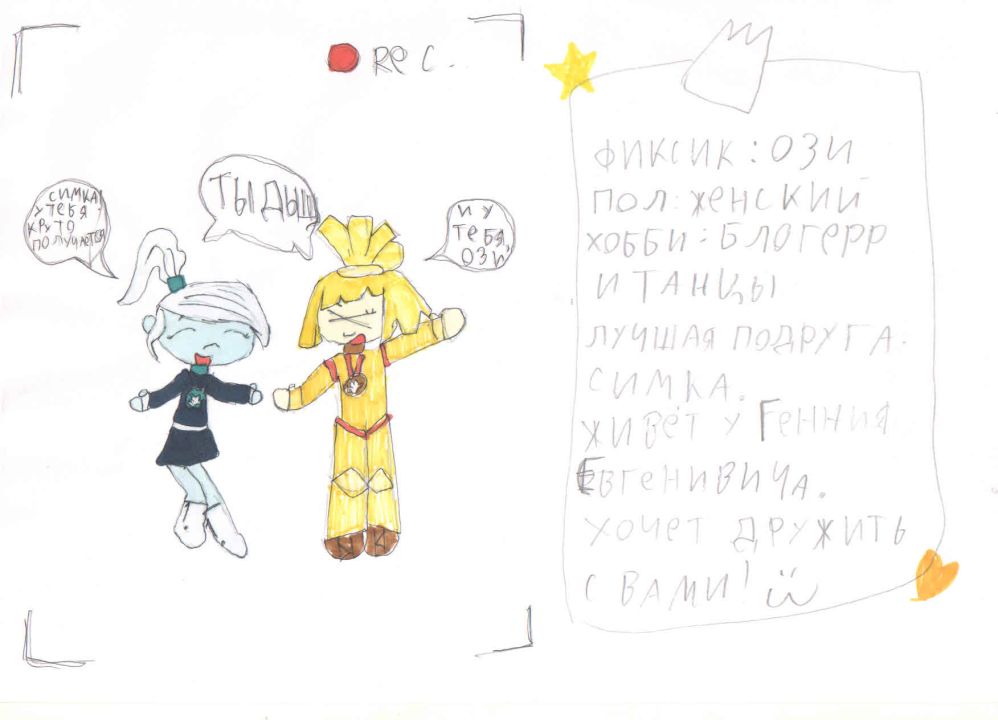 REC..
СИМКА!
У ТЕБЯ
КРУТО
ПОЛУЧАЕТСЯ
ТЫДЫЩ
И У
ТЕБЯ,
ОЗИ
ФИКСИК: ОЗИ
ПОЛ: ЖЕНСКИЙ
ХОББИ: БЛОГЕРР
И ТАНЦЫ
ЛУЧШАЯ ПОДРУГА.
СИМКА.
ЖИВЁТ У ГЕННИЯ
ЕВГЕНИВИЧА.
ХОЧЕТ ДРУЖИТЬ
С ВАМИ!